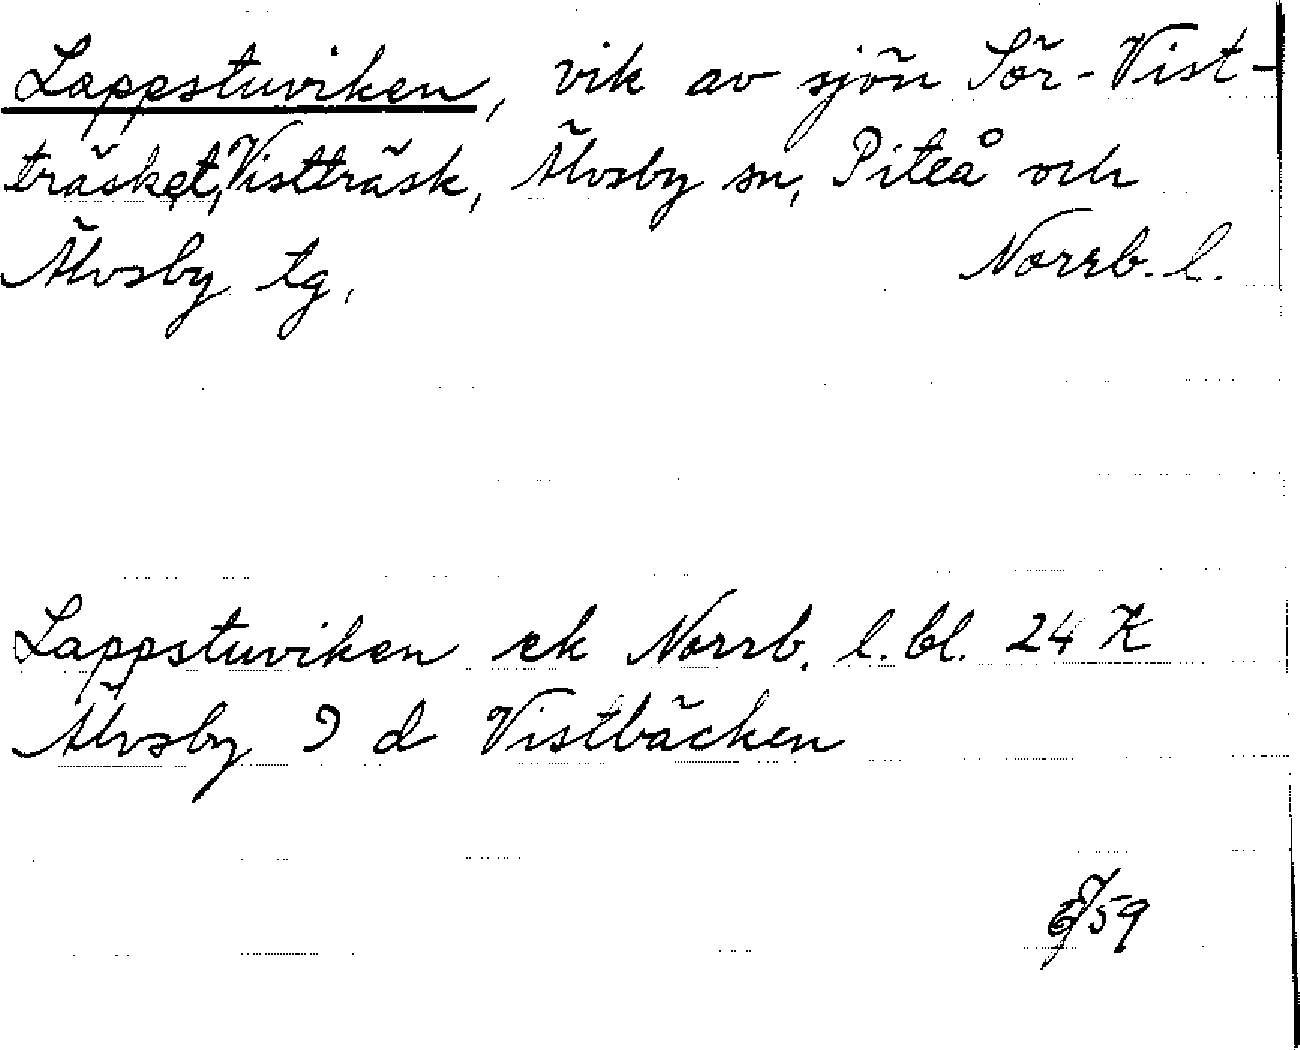 Lappstuviken, vik av sjön Sör-Vist-
träsket, Vistträsk, Älvsby sn, Piteå och
Älvsby tg, Norrb. l.
Lappstuviken ek Norrb. l. bl. 24 K
Älvsby 9 d Vistbäcken